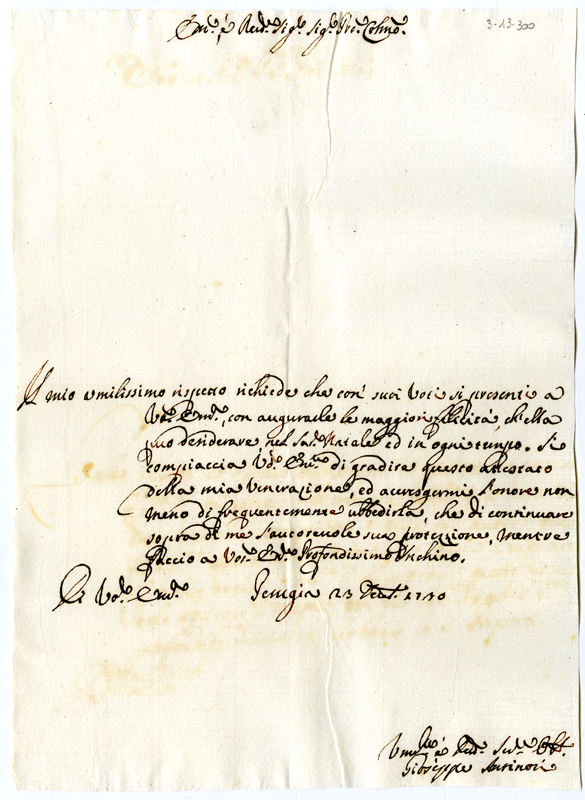 Em.ᵒ, e Reu.ᵐᵒ Sig.ʳᵉ Sig.ʳᵉ Pn̄e Colmo.
3-13-300
Il mio umilissimo rispetto richiede che con' suoi Voti si presenti a
Vr̄a Em.ᶻᵃ, con augurarle le maggiori filicità, ch'ella
puo desiderare nel San.ᵒ Natale ed in' ogni tempo. Si
compiaccia V.ᵃ Em.ᶻᵃ di gradire questo attestato
della mia Venerazione, ed l'onore non
meno di frequentemente ubbidirla, che di continuare
sopra di me l'autoreuole sua protezione, mentre
faccio a Vr̄a Em.ᶻᵃ Profondissimo Inchino.
Di Vr̄a Em.ᶻᵃ Perugia 23 1710
Um.ᵐᵒ e Seru.ʳᵉ
Gioseppe